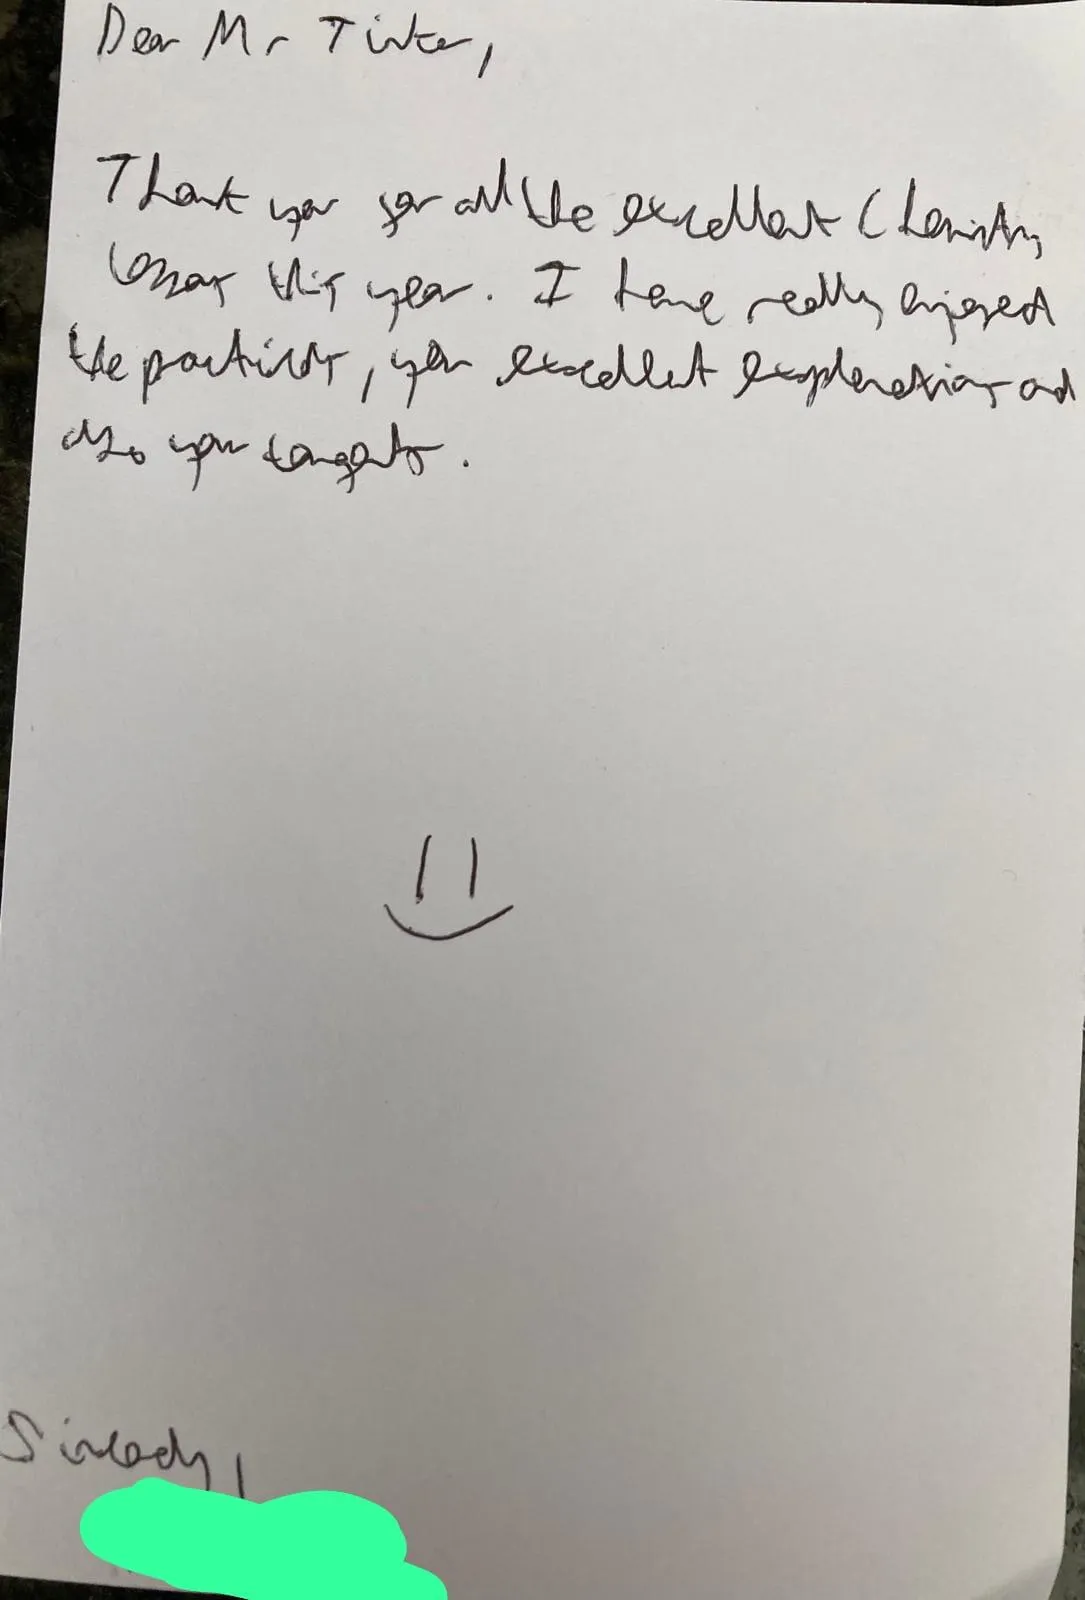 Dear Mr Tinker,
Thank you for all the excellent Chemistry
lessons this year. I have really enjoyed
the practicals, your excellent explanations and
also your tangents.
Sincerely,